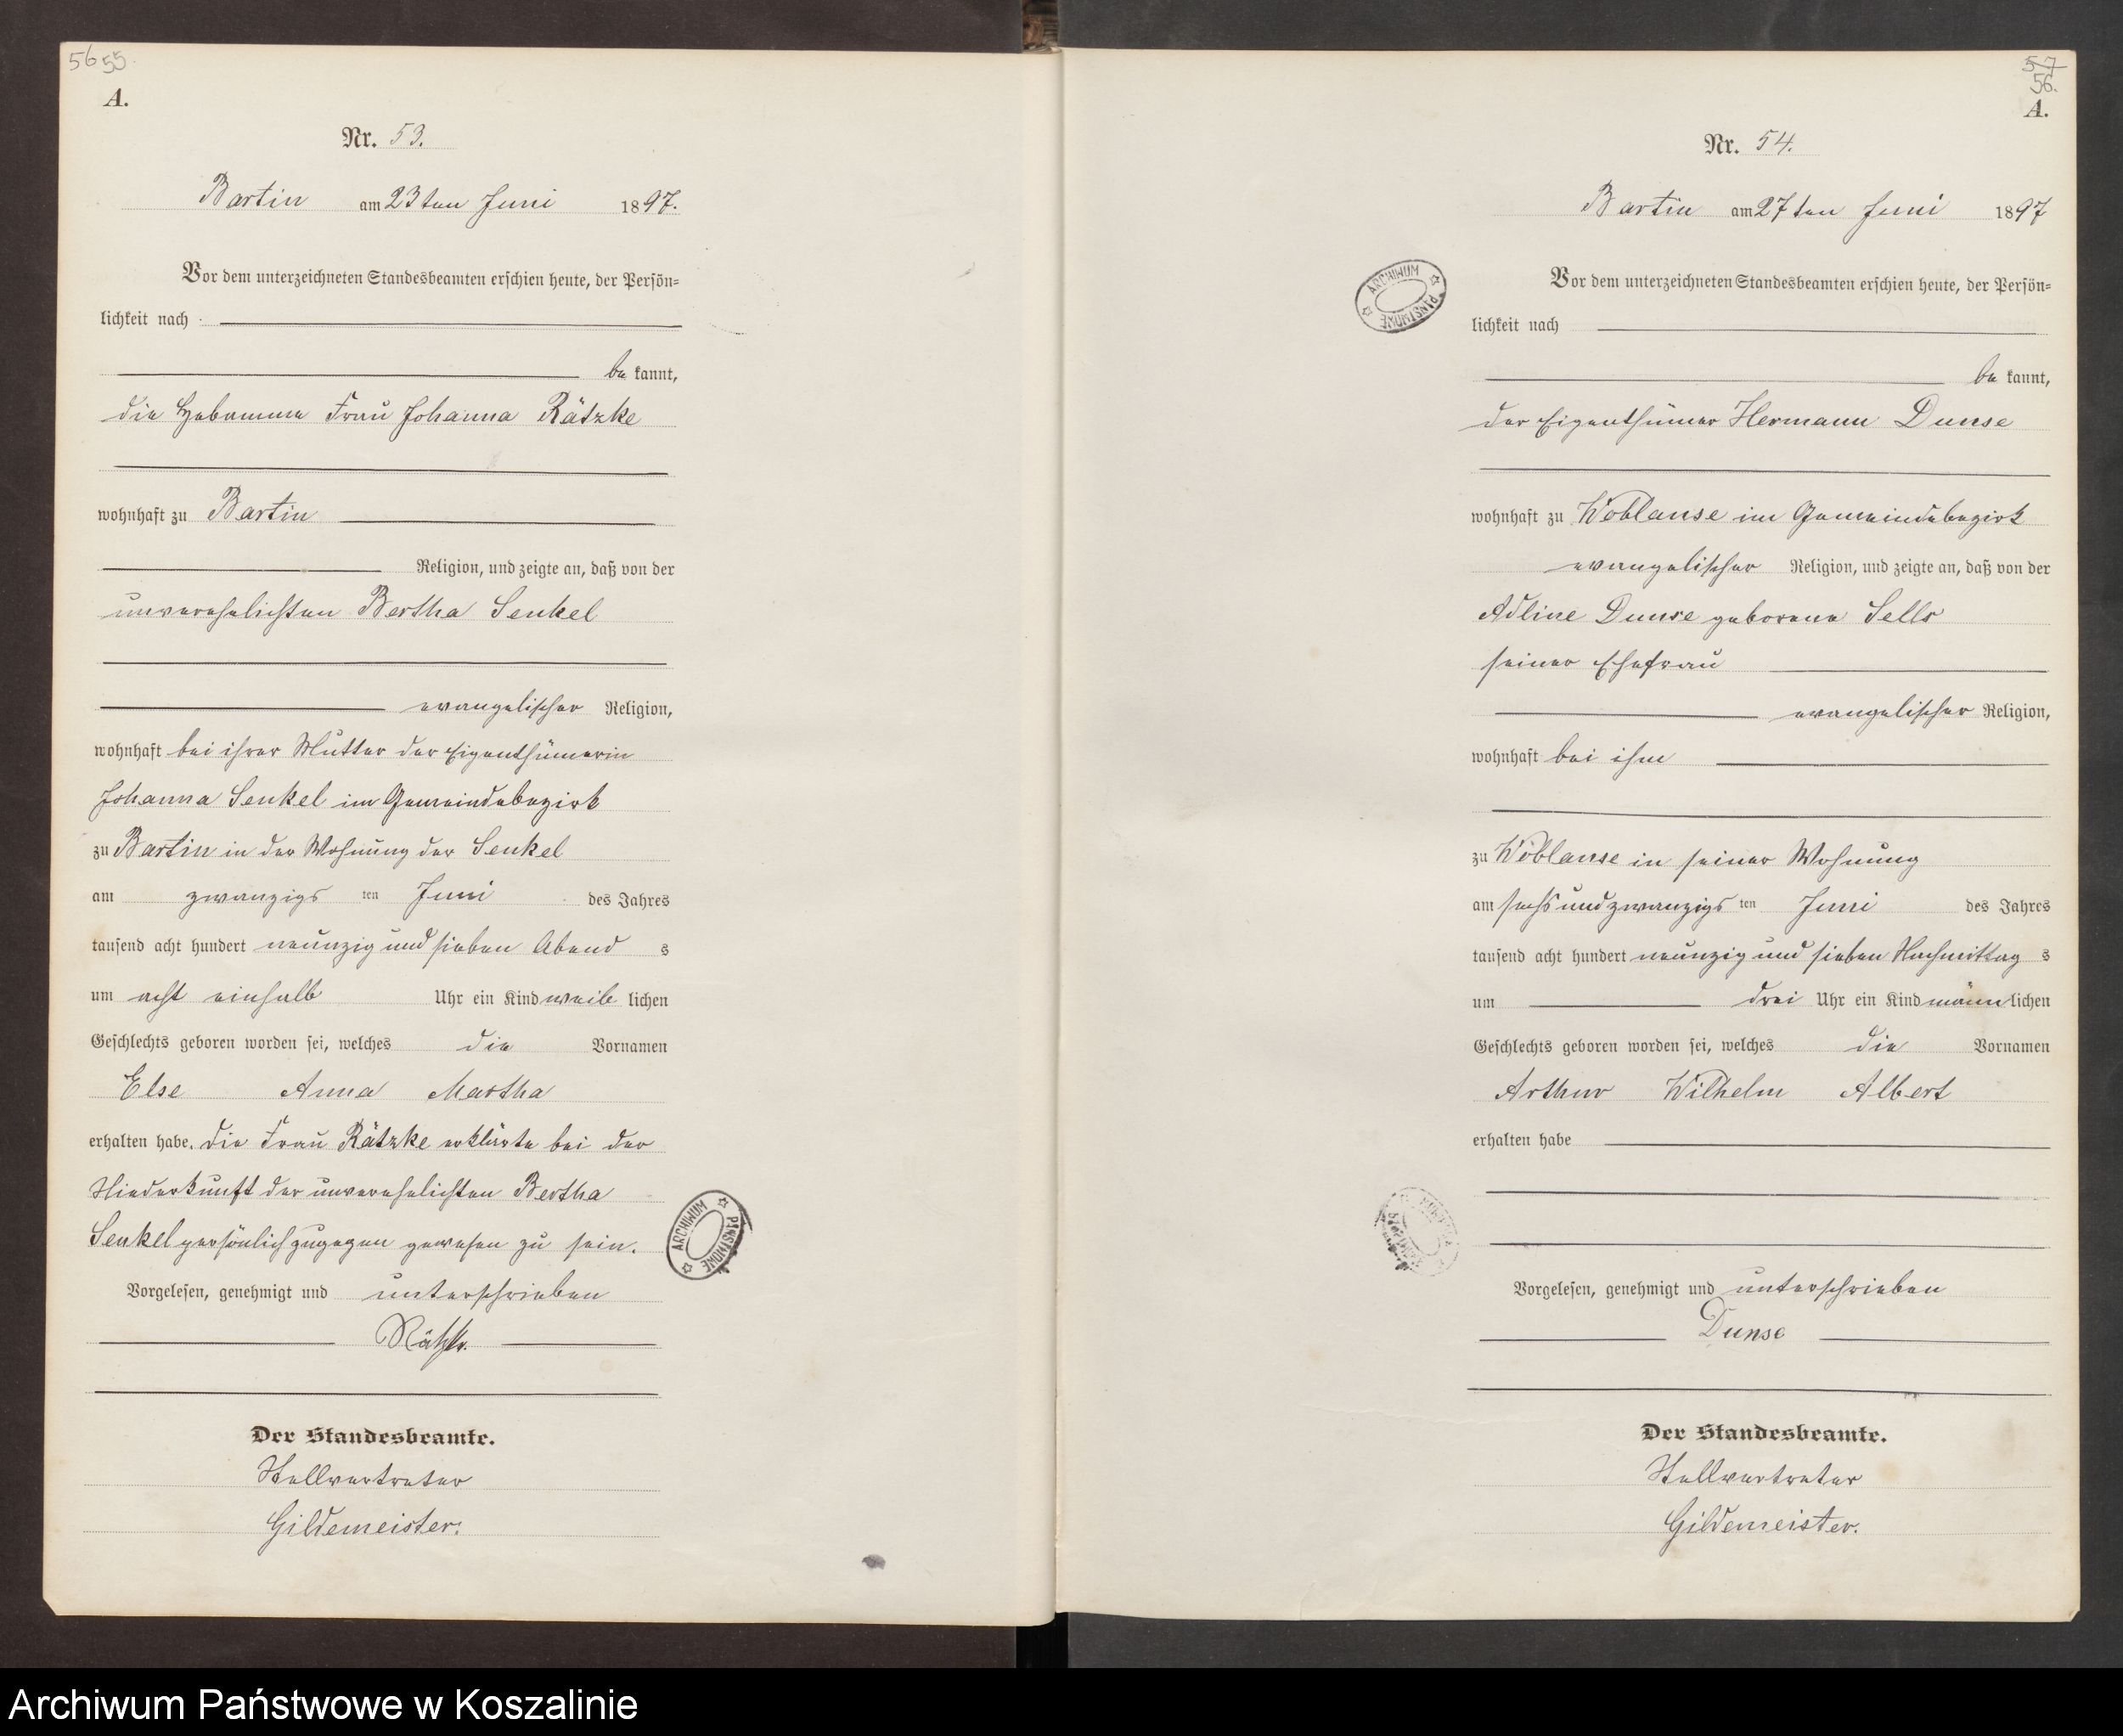 56 55.
A.
Nr. 53.
Bartin am 23ten Juni 1897.
Vor dem unterzeichneten Standesbeamten erschien heute, der Persön=
lichkeit nach
be kannt,
die Hebamme Frau Johanna Rätzke
wohnhaft zu Bartin
Religion, und zeigte an, daß von der
unverehelichten Bertha Senkel
evangelischer Religion,
wohnhaft bei ihrer Mutter der Eigenthümerin
Johanna Senkel im Gemeindebezirk
zu Bartin in der Wohnung der Senkel
am zwanzigs ten Juni des Jahres
tausend acht hundert neunzig und sieben Abend s
um acht einhalb Uhr ein Kind weib lichen
Geschlechts geboren worden sei, welches die Vornamen
Else Anna Martha
erhalten habe. Die Frau Rätzke erklärte bei der
Niederkunft der unverehelichten Bertha
Senkel persönlich zugegen gewesen zu sein.
Vorgelesen, genehmigt und unterschrieben
Rätzke.
Der Standesbeamte.
Stellvertreter
Gildemeister.
ARCHIWUM PAŃSTWOWE
57
56.
A.
Nr. 54.
Bartin am 27ten Juni 1897
Vor dem unterzeichneten Standesbeamten erschien heute, der Persön=
lichkeit nach
be kannt,
der Eigenthümer Hermann Dunse
wohnhaft zu Woblanse im Gemeindebezirk
evangelischer Religion, und zeigte an, daß von der
Adline Dunse geborene Sells
seiner Ehefrau
evangelischer Religion,
wohnhaft bei ihm
zu Woblanse in seiner Wohnung
am sechs und zwanzigs ten Juni des Jahres
tausend acht hundert neunzig und sieben Nachmittag s
um drei Uhr ein Kind männ lichen
Geschlechts geboren worden sei, welches die Vornamen
Arthur Wilhelm Albert
erhalten habe
Vorgelesen, genehmigt und unterschrieben
Dunse
Der Standesbeamte.
Stellvertreter
Gildemeister.
ARCHIWUM PAŃSTWOWE
Archiwum Państwowe w Koszalinie